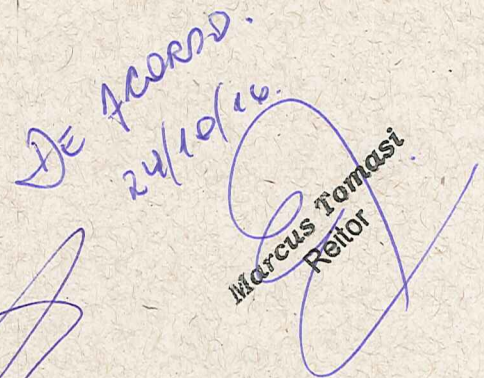 DE ACORDO.
24/10/16.
Marcus Tomasi
Reitor